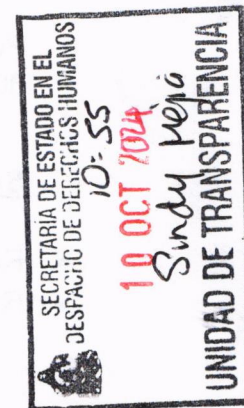 SECRETARIA DE ESTADO EN EL
DESPACHO DE DERECHOS HUMANOS
10:55
10 OCT 2024
Sindy Mejia
UNIDAD DE TRANSPARENCIA